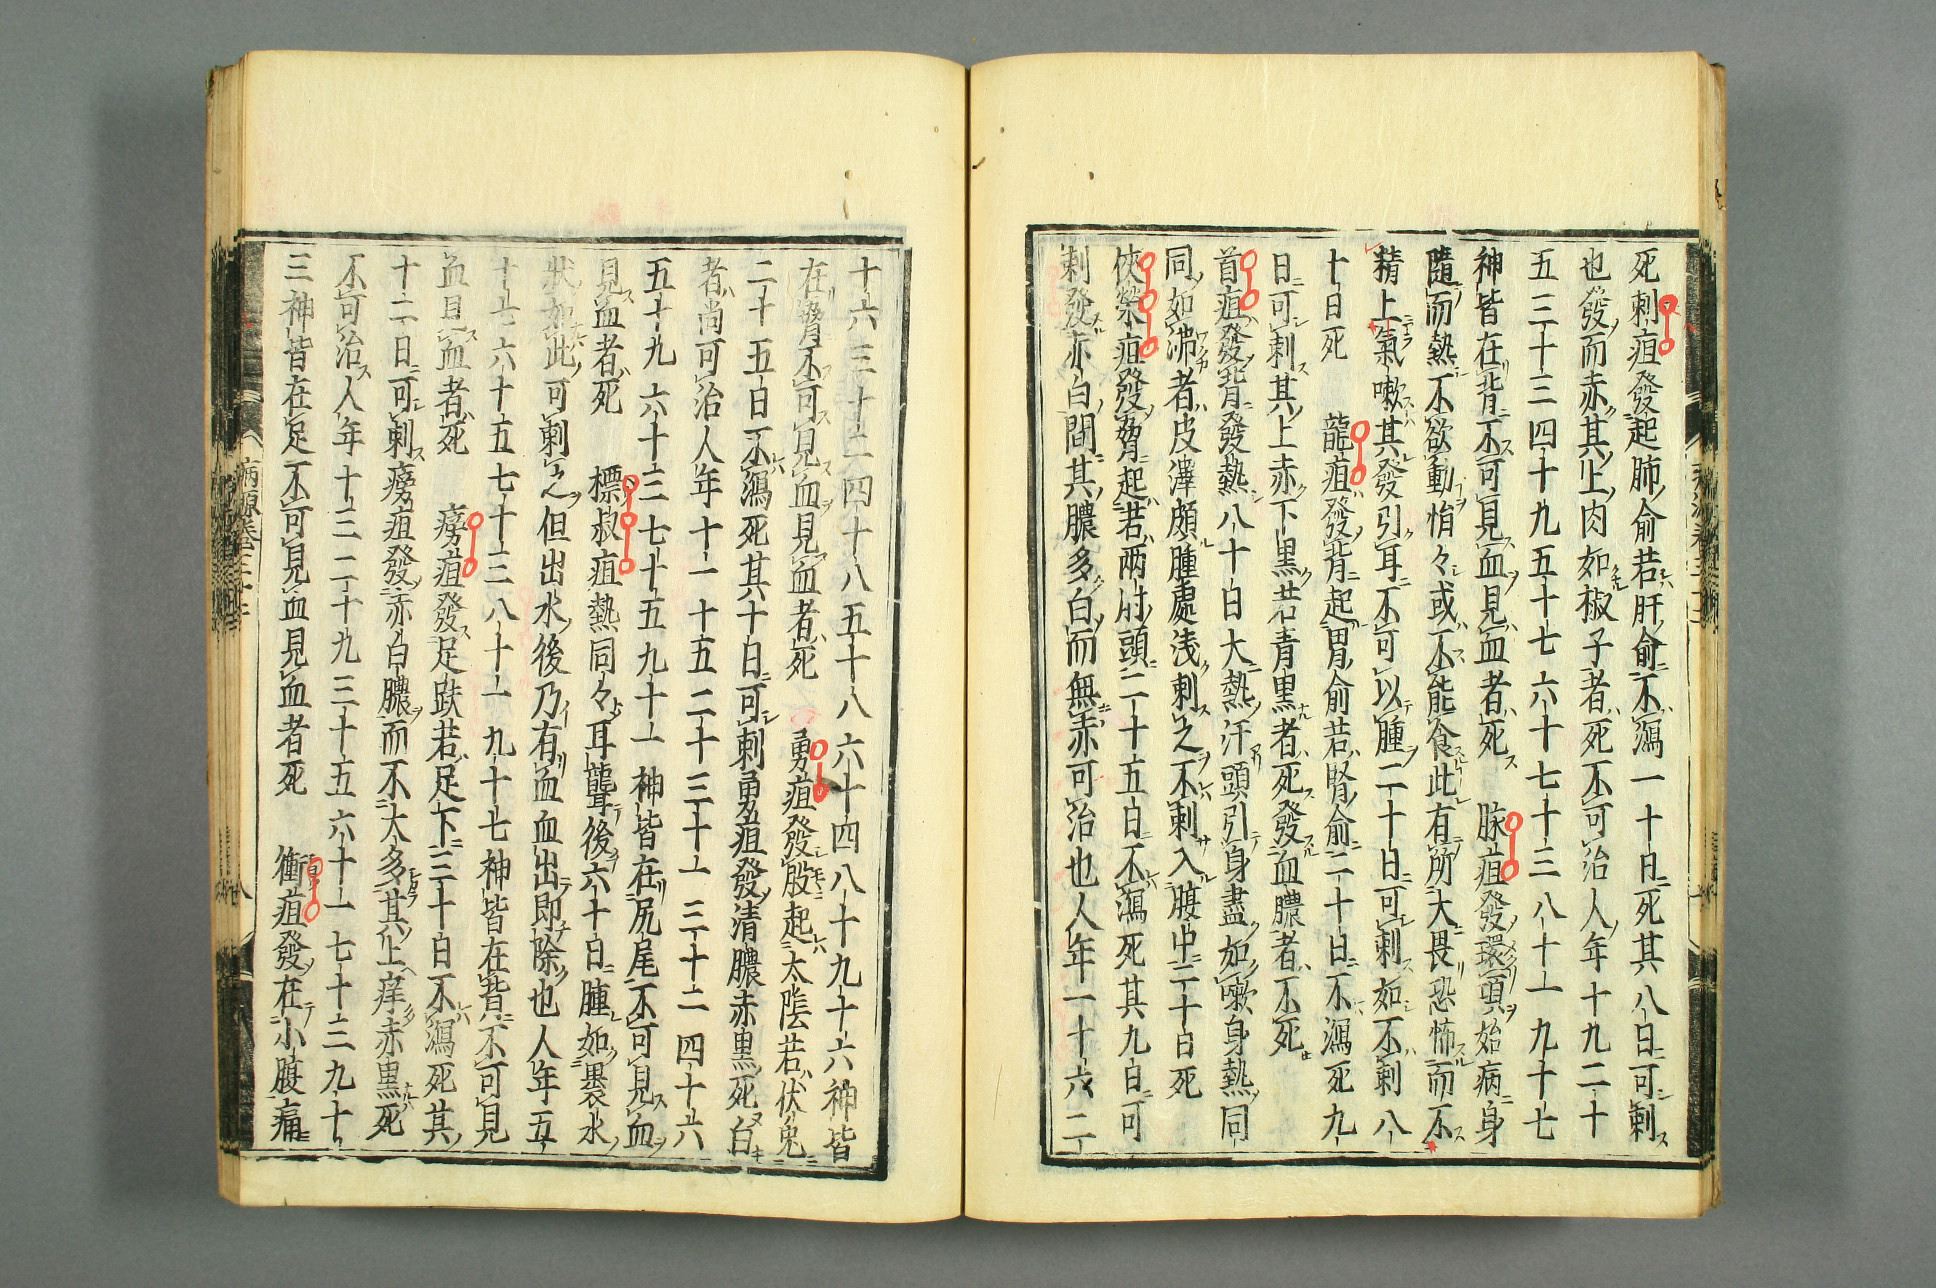 死刺疽發起肺俞若肝俞不瀉二十日死其八日可刺
也發而赤其上肉如椒子者死不可治人年十九二十
五三十三四十九五十七六十七十三八十一九十七
神皆在背不可見血見血者死 脉疽發環項始病身
隨而熱不欲動悁々或不能食此有所大畏恐怖而不
精上氣嗽其發引耳不可以腫二十日可刺如不刺八
十日死 龍疽發背起胃俞若腎俞二十日不瀉死九
日可刺其上赤下黑若青黑者死發血膿者不死
首疽發背發熱八十日大熱汗頭引身盡如嗽身熱同
同如沸者皮澤頗腫處淺刺之不刺入腹中二十日死
俠榮疽發脅起若兩肘頭二十五日不瀉死其九日可
刺發赤白間其膿多白而無赤可治也人年一十六二
十六三十二四十八五十八六十四八十九十六神皆
在脅不可見血見血者死 勇疽發股起太陰若伏兔
二十五日不瀉死其十日可刺勇疽發清膿赤黑死白
者尚可治人年十一十五二十三十一三十二四十六
五十九六十三七十五九十一神皆在尻尾不可見血
見血者死 標叔疽熱同々耳聾後六十日腫如裹水
狀如此可刺之但出水後乃有血血出即除也人年五
十七六十五七十三八十一九十七神皆在背不可見
血見血者死 㾮疽發足趺若足下三十日不瀉死其
十二日可刺㾮疽發赤白膿而不大多其上痒赤黑死
不可治人年十三二十九三十五六十一七十三九十
三神皆在足不可見血見血者死 衝疽發在小腹痛
病源卷三十二
八